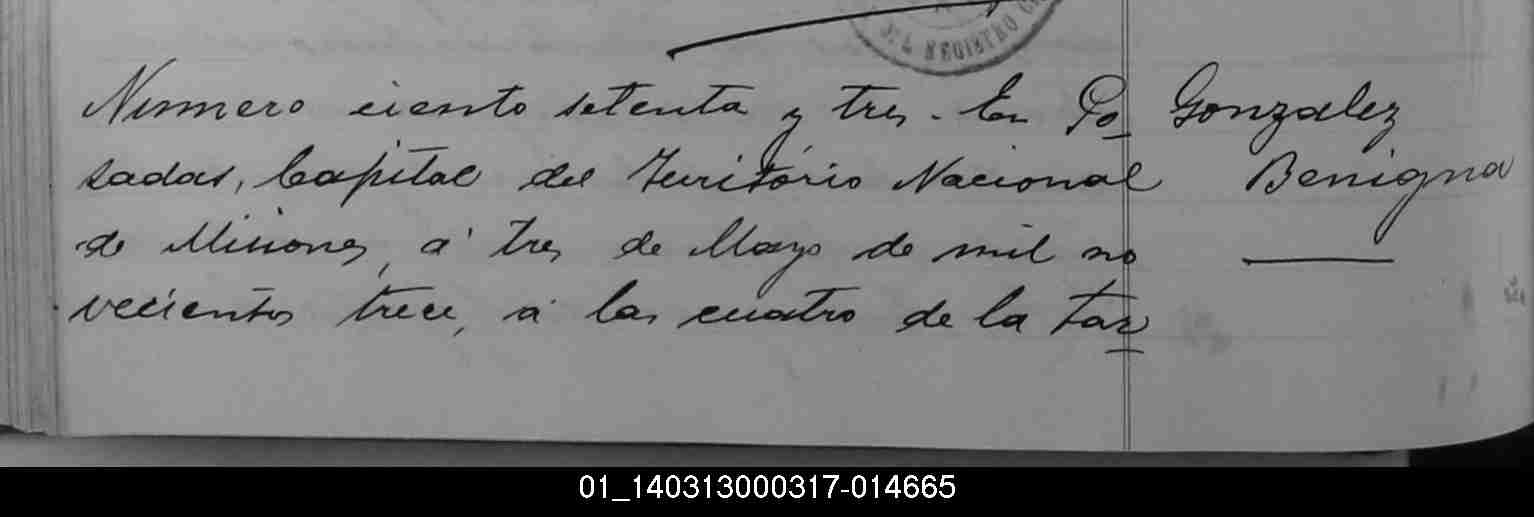 REGISTRO
Numero ciento setenta y tres. En Po
sadas, Capital del Territorio Nacional
de Misiones, á tres de Mayo de mil no
vecientos trece, á las cuatro de la tar
Gonzalez
Benigna
01_140313000317-014665